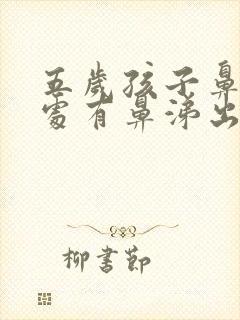 五歲孩子鼻
處有鼻涕出
柳書節